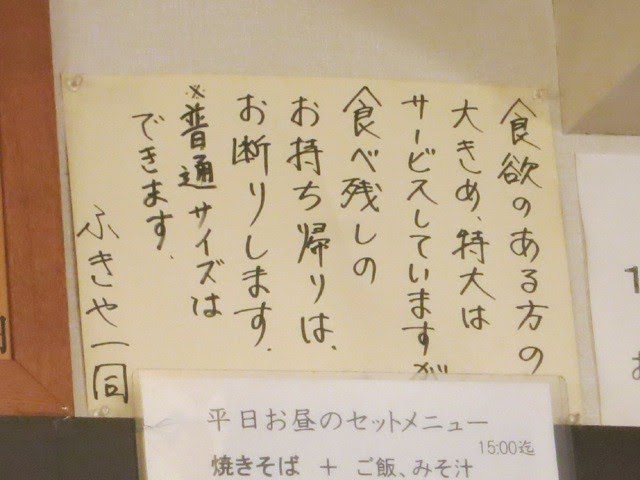 食欲のある方の
大きめ、特大は
サービスしていますが
食べ残しの
お持ち帰りは、
お断りします.
※普通サイズは
できます.
ふきや一同
平日お昼のセットメニュー
15:00迄
焼きそば + ご飯、みそ汁